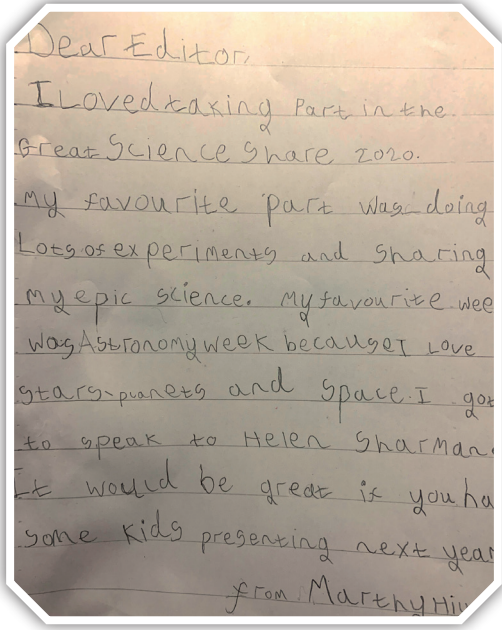 Dear Editor,
I Loved taking Part in the
Great Science Share 2020.
My favourite part was doing
Lots of experiments and Sharing
my epic science. My favourite wee
was Astronomy week because I Love
stars planets and space. I got
to speak to Helen Sharman.
It would be great if you ha
some kids presenting next year
from Marthy